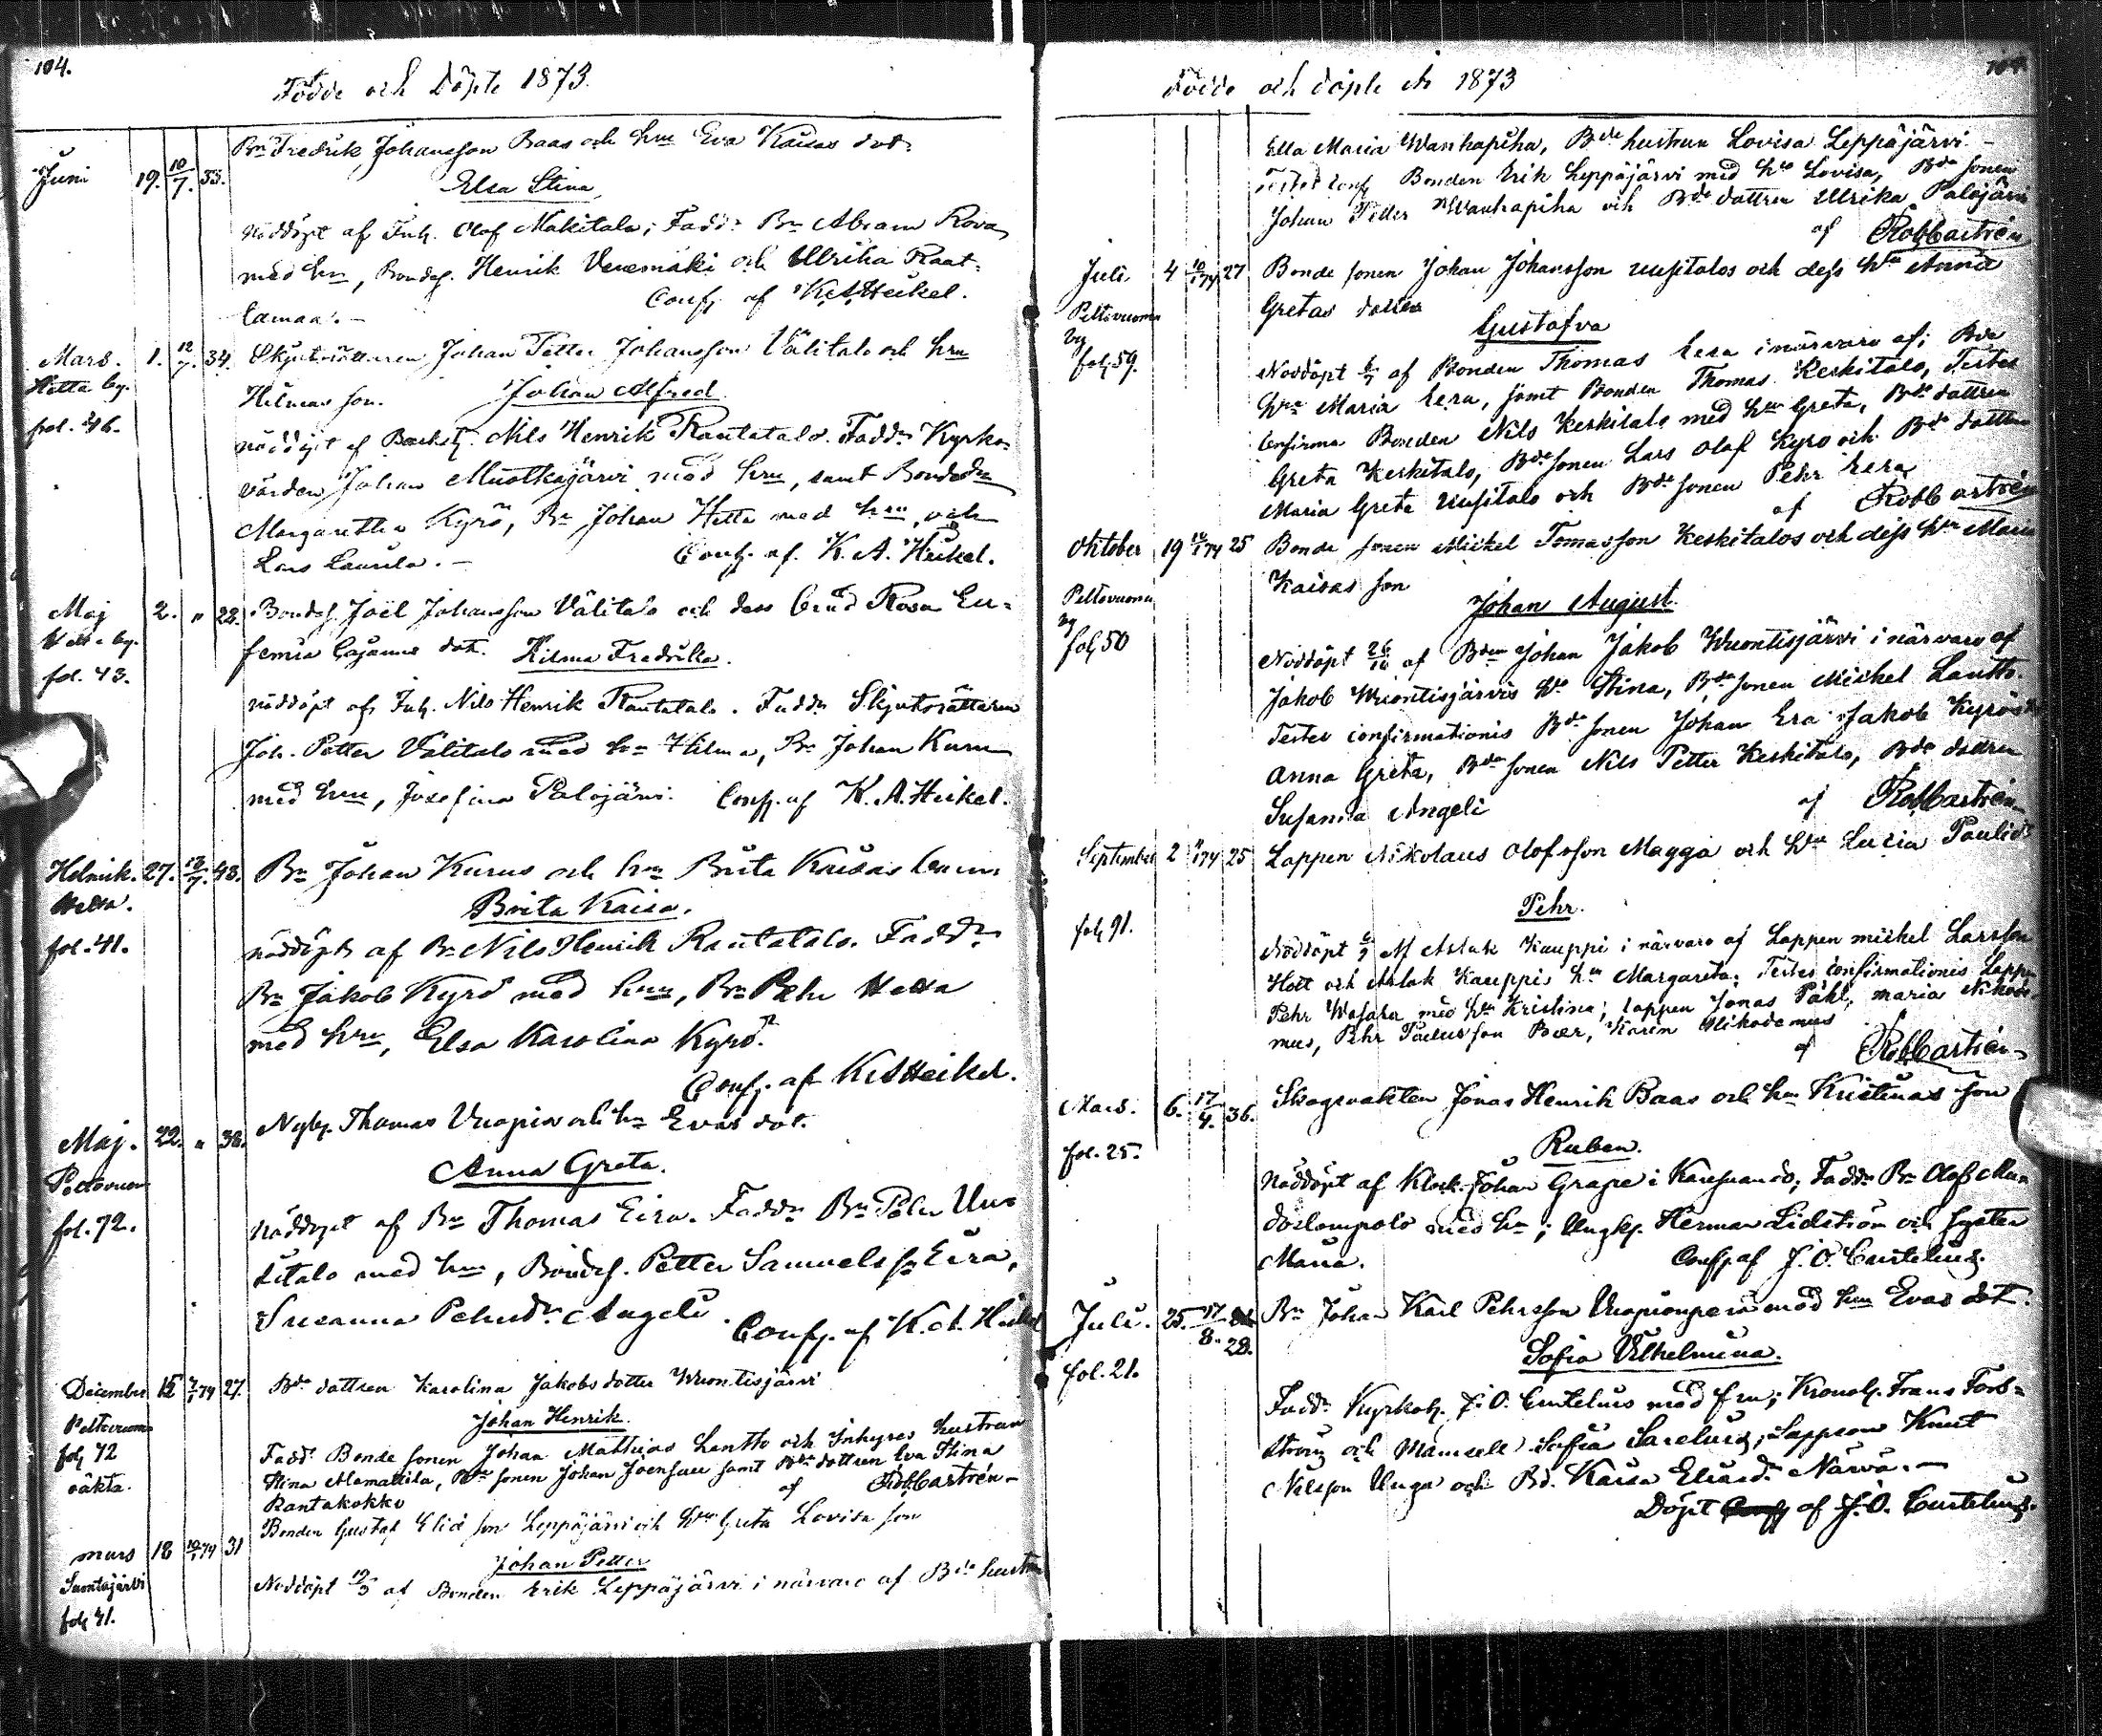 104.
Födde och Döpte 1873.
Juni 19. 10/7. 33. Bn Fredrik Johansson Baas och hru Eva Kaisas dot.
Elsa Stina
nöddöpt af Inh. Olof Makitalo; Fadd. Bn Abram Rova
med hru, Bondes. Henrik Venemäki och Ulrika Raat-
lamaa.— Conf. af K. A. Heikel.
Mars. 1. 12/7. 34. Skjutsrättaren Johan Petter Johansson Välitalo och hru
Hetta by. Hilmas son. Johan Alfred
fol. 46. nöddöpt af Nils Henrik Rantatalo. Fadd. Kyrko-
värden Johan Muotkajärvi med hru, samt Bondedr
Margaretha Kyrö, Bn Johan Hetta med hru och
Lars Laurila.— Conf. af K. A. Heikel.
Maj 2. " 22. Bondes. Joël Johansson Välitalo och dess brud Rosa Eu-
Hetta by. femia Cajanus dot. Hilma Fredrika.
fol. 43. nöddöpt af Inh. Nils Henrik Rantatalo. Fadd. Skjutsrättaren
Joh. Petter Välitalo med hu Hilma, Bn Johan Kuru
med hru, Josefina Palojärvi. Conf. af K. A. Heikel.
27. 12/7. 43. Bn Johan Kurus och hru Brita Kaisas barn
Hetta. Brita Kaisa.
fol. 41. nöddöpt af Bn Nils Henrik Rantatalo. Fadd.
Bn Jakob Kyrö med hru, Bn Pehr Hetta
med hru, Elsa Karolina Kyrö.
Conf. af K. A. Heikel.
Maj. 22. " 38. Nyby. Thomas Vuopio och hu Evas dot.
Peltovuom Anna Greta.
fol. 72. nöddöpt af Bn Thomas Eira. Fadd. Bn Pehr Uu-
sitalo med hru, Bondes. Petter Samuelss. Eira,
Susanna Pehrsdr Angeli. Conf. af K. A. Heikel
December 15 27. Bde dottren Karolina Jakobs dotter Wuontisjärvi
Peltovuom Johan Henrik.
fol 72 Fadd. Bonde sonen Johan Mathias Lantto och Inhyses hustrun
oäkta. Stina Alamattila, Bde sonen Johan Joensuu samt Bde dottren Eva Stina
Rantakokko af Rob Castrén
mars 18 10/1 74 31 Bonden Gustaf Elias son Leppäjärvi och hru Greta Lovisa son
Johan Petter
fol 41. Nöddöpt 19/3 af Bonden Erik Leppäjärvi i närvaro af Bde hustru
Födde och döpte år 1873
Ella Maria Wanhapiha, Bde hustrun Lovisa Leppäjärvi.—
Testes conf Bonden Erik Leppäjärvi med hu Lovisa, Bde sonen
Johan Petter Wanhapiha och Bde dottren Ulrika Palojärvi
af Rob Castrén
Juli 4 10/1 74 27 Bonde sonen Johan Johansson Uusitalos och dess hu Anna
Peltovuoma Gretas dotter
by Gustafva
fol 59. Nöddöpt 6/7 af Bonden Thomas Eera i närvaro af; Bde
hru Maria Eera, samt Bonden Thomas Keskitalo, Testes
Confirma Bonden Nils Keskitalo med hu Greta, Bde dottren
Greta Keskitalo, Bde sonen Lars Olof Kyrö och Bde dottren
Maria Greta Uusitalo och Bde sonen Pehr Eera
af Rob Castrén
Oktober 19 12/1 74 25 Bonde sonen Mickel Tomasson Keskitalos och dess hu Maria
Peltovuoma Kaisas son
by Johan August.
fol 50 Nöddöpt 26/10 af Bden Johan Jakob Wuontisjärvi i närvaro af
Jakob Wuontisjärvis hu Stina, Bde sonen Mickel Lantto.
Testes confirmationis Bde sonen Johan Era Jakob Kyrös
Anna Greta, Bde sonen Nils Petter Keskitalo, Bde dottren
Susanna Angeli af Rob Castrén
September 2 25 Lappen Nikolaus Olofsson Magga och hu Lucia Paulid
Pehr.
fol 91. Nöddöpt af Aslak Kauppi i närvaro af Lappen mickel Larsson
Hott och Aslak Kauppis hu Margareta; Testes confirmationis Lappen
Pehr Wasara med hu Kristina; Lappen Jonas Påhl, maria Nikode-
mus, Pehr Paulusson Bær, Karin Nikodemus
af Rob Castrén
Mars. 6. 17/4. 36. Skogsvakten Jonas Henrik Baas och hu Kristinas son
fol. 25. Ruben.
Nöddöpt af Klock. Johan Grape i Karesuando; Fadd. Bn Olof Mun
doslompolo med hu; Ungk. Herman Lidström och syster
Maria. Conf. af J. O. Curtelius.
Juli. 25. 17/8. 28. Bn Johan Karl Pehrsson Vuopionperä med hru Evas dot.
fol. 21. Sofia Vilhelmina.
Fadd. Kyrkoh. J. O. Curtelius med fru; Kronol. Frans Fors-
ström och Mamsell Sofia Sarelius; Lappson Knut
Nilsson Unga och Bd. Kaisa Eliasdr Närvä.—
Döpt af J. O. Curtelius.